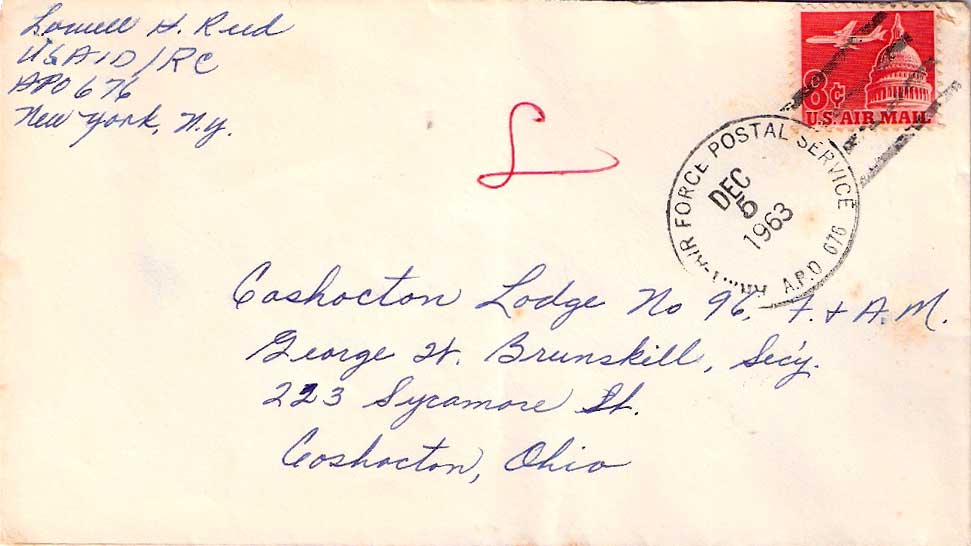 Lowell H. Reed
USAID/RC
APO 676
New York, N.Y.
8¢
U.S. AIR MAIL
ARMY-AIR FORCE POSTAL SERVICE
DEC
5
1963
A.P.O 676
L
Coshocton Lodge No 96, F. & A.M.
George W. Brunskill, Sec'y.
223 Sycamore St.
Coshocton, Ohio